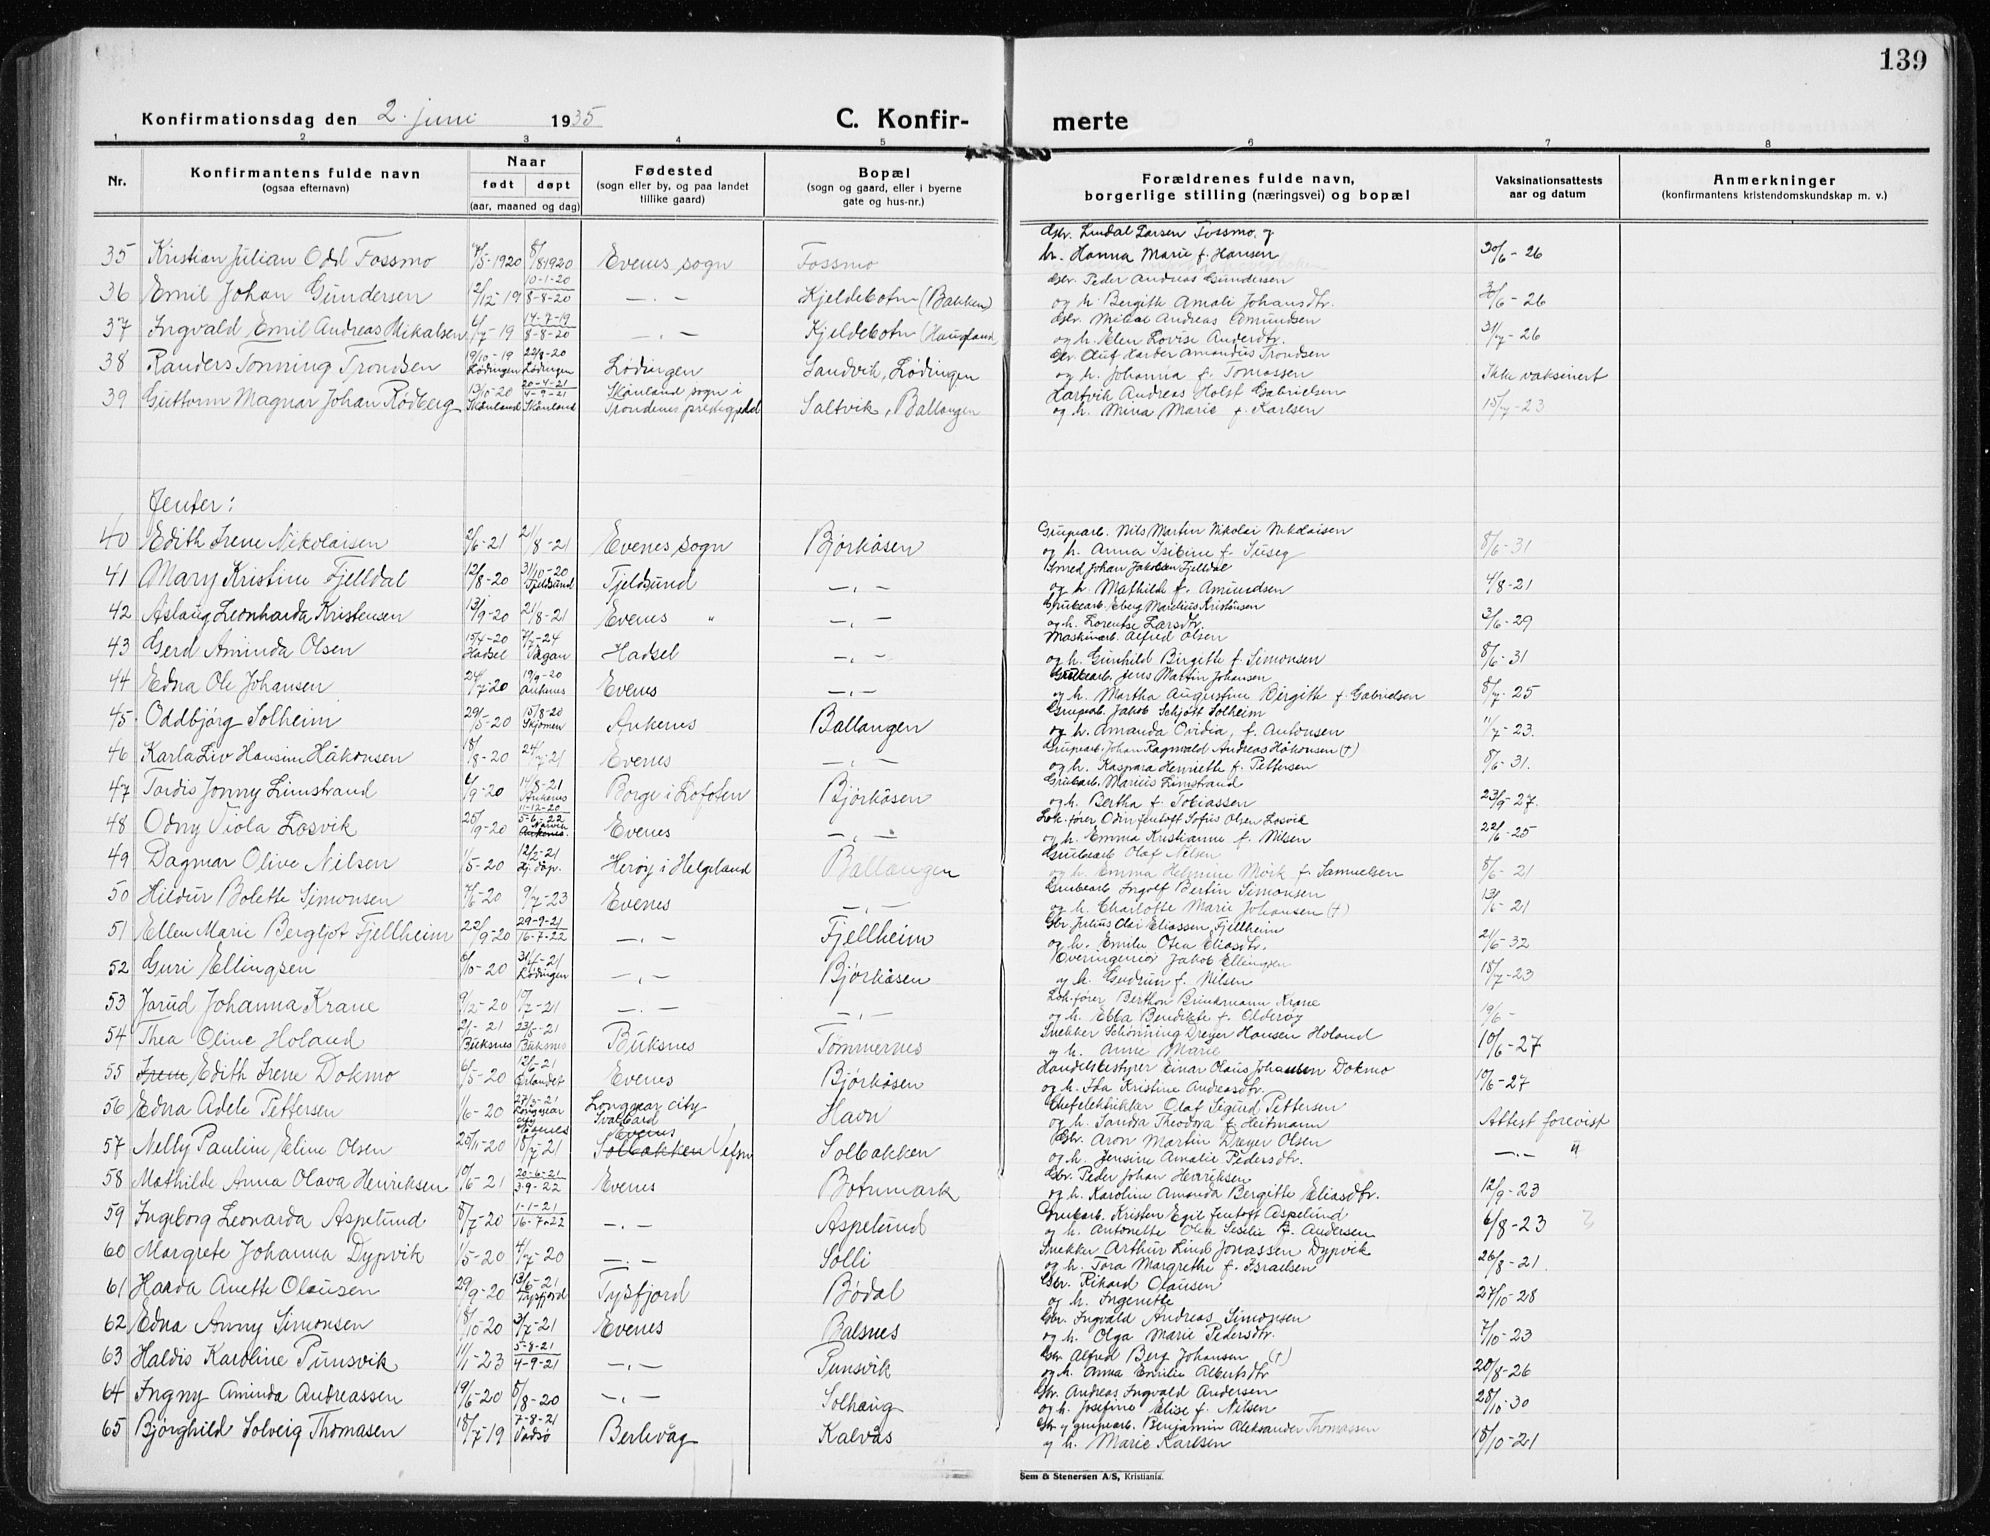 139
Konfirmationsdag den 2. juni 1935
C. Konfir-
merte
1 2 3 4 5 6 7 8
Nr.
Konfirmantens fulde navn
(ogsaa efternavn)
Naar
født døpt
(aar, maaned og dag)
Fødested
(sogn eller by, og paa landet
tillike gaard)
Bopæl
(sogn og gaard, eller i byerne
gate og hus-nr.)
Forældrenes fulde navn,
borgerlige stilling (næringsvei) og bopæl
Vaksinationsattests
aar og datum
Anmerkninger
(konfirmantens kristendomskundskap m. v.)
35 Kristian Julian Odd Fossmo 8/8 1920 Evenes sogn Fossmo
Gbr. Lindal Larsen Fossmo og
h. Hanna Marie f. Hansen 30/6-26
36 Emil Johan Gundersen 2/12-19 10-1-20 8-8-20 —.— Kjeldebotn (Bakken)
Gbr. Peder Andreas Gundersen
og h. Bergitte Amali Johansdtr. 30/6-26
37 Ingvald Emil Andreas Mikalsen 14-7-19 8-8-20 —.— Kjeldebotn (Haugland
Gbr. Mikal Andreas Amundsen
og h. Elen Lovise Anderdtr. 31/7-26
38 Randers Tonning Trondsen 19/10-19 Lødingen 22/8-20 Lødingen Lødingen Sandvik, Lødingen
Gbr. Oluf Harder Amandus Trondsen
og h. Johanna f. Tomassen Ikke vaksinert
39 Guttorm Magnar Johan Rødberg 13/10-20 Skånland 20-4-21 4-9-21 Skånland Skånland sogn i
Trondenes prestegjeld Saltvik, Ballangen
Hartvik Andreas Holst Gabrielsen
og h. Mina Marie f. Karlsen 15/7-23
Jenter:
40 Edith Irene Nikolaisen 2/6-21 21/8-21 Evenes sogn Bjørkåsen
Grupearb. Nils Martin Nikolai Nikolaisen
og h. Anna Isibine f. 8/6-31
41 Mary Kristine Fjelldal 12/8-20 31/10-20 Fjeldsund Tjeldsund —.—
Smed Johan Jakobsen Fjelldal
og h. Mathilde f. Amundsen 4/8-21
42 Aslaug Leonharda Kristensen 13/9-20 21/8-21 Evenes " —.—
Grubearb. Eberg Marelius Kristensen
og h. Lorentse Larsdtr. 3/6-29
43 Gerd Aminda Olsen 15/4-20 Hadsel 7/7-24 Vågan Hadsel —.—
Maskinarb. Alfred Olsen
og h. Gunhild Birgitte f. Simonsen 8/6-31
44 Edna Ole Johansen 24/7-20 19/9-20 Ankenes Evenes —.—
Grubearb. Jens Martin Johansen
og h. Martha Augustine Birgith f. Gabrielsen 8/7-25
45 Oddbjørg Solheim 29/5-20 15/8-20 Skjomen Ankenes Ballangen
Grupearb. Jakob Schjøtt Solheim
og h. Amanda Ovidia, f. Antonsen 11/7-23
46 Karla Liv Hansine Håkonsen 18/8-20 24/7-21 Evenes —.—
Grupearb. Johan Ragnvald Andreas Håkonsen (†)
og h. Kaspara Henriette f. Pettersen 8/6-31.
47 Tordis Jonny Limstrand 4/9-20 14/8-21 Ankenes Borge i Lofoten Bjørkåsen
Grubearb. Marius Limstrand
og h. Bertha f. Tobiassen 23/9-27.
48 Odny Viola Losvik 25/9-20 11-12-20 5-6-22 Narvik Ankenes. Evenes —.—
Lok.fører Odin Jentoft Sofus Olsen Losvik
og h. Emma Kristianne f. Nilsen 22/6-25
49 Dagmar Olive Nilsen 1/5-20 12/2-21 Hj.døp. Herøy i Helgeland Ballangen
Grubearb Olaf Nilsen
og h. Emma Helmine Mörk f. Samuelsen 8/6-21
50 Hildur Bolette Simonsen 7/6-20 9/7-23 Evenes —.—
Grubearb Ingolf Bertin Simonsen
og h. Charlotte Marie Johansen (†) 13/6-21
51 Ellen Marie Bergljot Fjellheim 22/9-20 29-9-21 16-7-22 —.— Fjellheim
Gbr Julius Olai Eliassen Fjellheim
og h. Emilie Otea Eliasdtr. 21/6-32
52 Guri Ellingsen 6/10-20 Lødingen —.— Bjørkåsen
Overingeniør Jakob Ellingsen
og h. Gudrun f. Nilsen 18/7-23
53 Jorud Johanna Krane 9/12-20 10/7-21 —.— —.—
Lok.fører Berthon Brinkmann Krane
og h. Ebba Bendikte f. Olderøy 19/6-
54 Thea Oline Holand 2/1-21 Buksnes 23/5-21 Buksnes Buksnes Tømmernes
Snekker Schønning Dreyer Hansen Holand
og h. Anne Marie 10/6-27
55 Irene Edith Irene Dokmo 6/5-20 12/6-21 Ørlandet Evenes Bjørkåsen
Handelsbestyrer Einar Olaus Johansen Dokmo
og h. Ida Kristine Andreasdtr. 10/6-27
56 Edna Adele Pettersen 1/6-20 27/3-21 Longyear city Longyear city
Svalbard Havn
Chefelektrikker Olaf Sigurd Pettersen
og h. Sandra Theodora f. Heitmann Attest forevist
57 Nelly Pauline Eline Olsen 25/11-20 Evenes 18/7-21 Evenes
Solbakken Vefsn Solbakken
Gbr. Aron Martin Dreyer Olsen
og h. Jensine Amalie Pedersdtr. —.— "
58 Mathilde Anna Olava Henriksen 10/6-21 20-6-21 3-9-22 Evenes Botnmark
Gbr. Peder Johan Henriksen
og h. Karoline Amanda Bergitte Eliasdtr. 12/9-23
59 Ingeborg Leonarda Aspelund 8/7-20 1-1-21 16-7-22 —.— Aspelund
Grubearb. Kristen Egil Jentoft Aspelund
og h. Antonette Olea Seselie f. Andersen 6/8-23
60 Margrete Johanna Dypvik 1/5-20 4/7-20 —.— Solli
Snekker Arthur Lind Jonassen Dypvik
og h. Tora Margrethe f. Israelsen 26/8-21.
61 Haarda Anette Olausen 29/9-20 13/6-21 Tysfjord Tysfjord Bødal
Gbr. Rikard Olausen
og h. Ingenette 27/10-28
62 Edna Anny Simonsen 18/10-20 3/7-21 Evenes Balsnes
Gbr. Ingvald Andreas Simonsen
og h. Olga Marie Pedersdtr. 7/10-23
63 Haldis Karoline Punsvik 11/1-23 5-8-21 4-9-21 —.— Punsvik
Gbr Alfred Berg Johansen (†)
og h. Anna Emilie Albertsdtr 20/8-26
64 Ingny Aminda Andreassen 19/6-20 8/8-20 —.— Solhaug
Gbr. Andreas Ingvald Andersen
og h. Josefine Elise f. Nilsen 28/10-30
65 Bjørghild Solveig Thomasen 18/7-19 7-8-21 Vadsø Berlevåg Kalvås
Gbr og grupearb. Benjamin Aleksander Thomassen
og h. Marie Karlsen 18/10-21
Sem & Stenersen A/S, Kristiania.